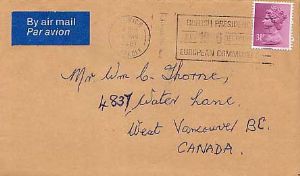 By air mail
Par avion
BRITISH PRESIDENCY
EUROPEAN COMMUNITY
Mr Wm C Thorne,
4837 Water Lane.
West Vancouver BC.
CANADA.